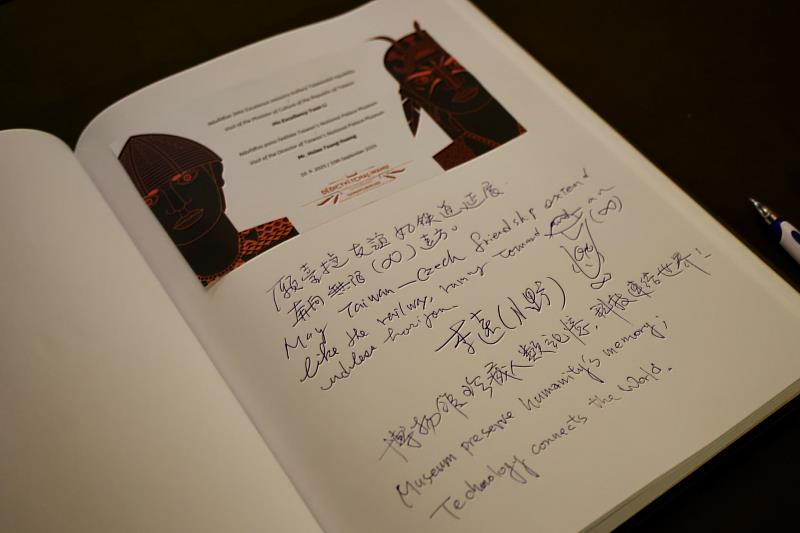 Visit of the Minister of Culture of the Republic of Taiwan
His Excellency Yuan Li
Visit of the Director of Taiwan's National Palace Museum
Mr. Hsiao Tsung-huang
願臺捷友誼如鐵道延展
奔向無限(∞)遠方。
May Taiwan–Czech friendship extend
like the railway, runing toward an (∞)
endless horizon
李遠(小野) ∞
博物館珍藏人類記憶,科技連結世界!
Museum preserve humanity's memory;
Technology connects the world.